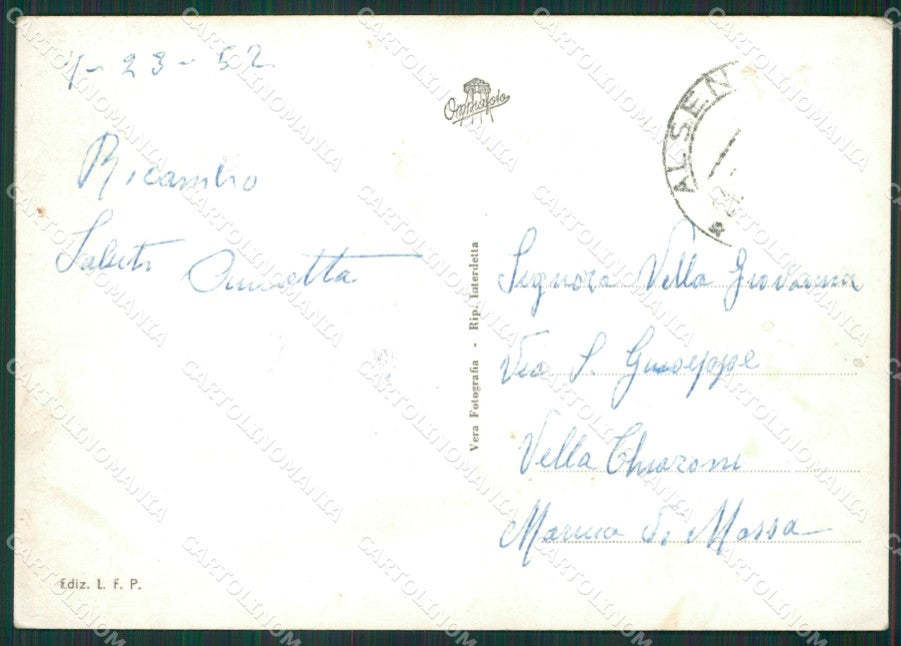 23 - 52
Ricambio
Saluti
Omniafoto
ALSEN
Vera Fotografia - Rip. Interdetta
Signora Vella Giovanna
Via S. Giuseppe
Vella Chiaroni
Marina di Massa
Ediz. L. F. P.
CARTOLINOMANIA